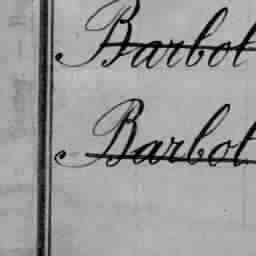 Barbot
Barbot